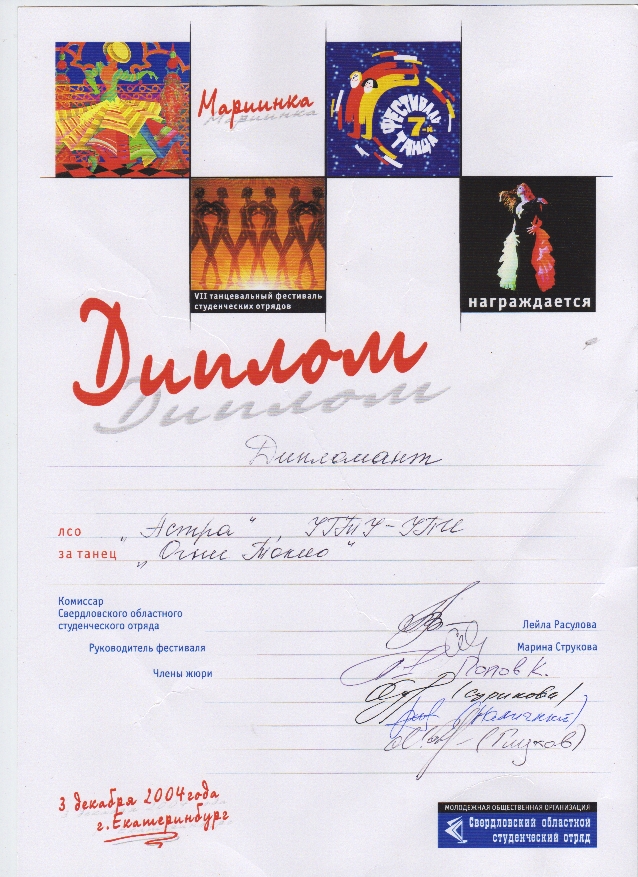 Мариинка
ФЕСТИВАЛЬ
7-й
ТАНЦА
VII танцевальный фестиваль
студенческих отрядов
награждается
Диплом
Дипломант
лсо „Астра“, УГТУ-УПИ
за танец „Огни Токио“
Комиссар
Свердловского областного
студенческого отряда
Лейла Расулова
Руководитель фестиваля
Марина Струкова
Члены жюри
Попов К.
(Сурикова)
(Глузков)
3 декабря 2004 года
г. Екатеринбург
МОЛОДЕЖНАЯ ОБЩЕСТВЕННАЯ ОРГАНИЗАЦИЯ
Свердловский областной
студенческий отряд